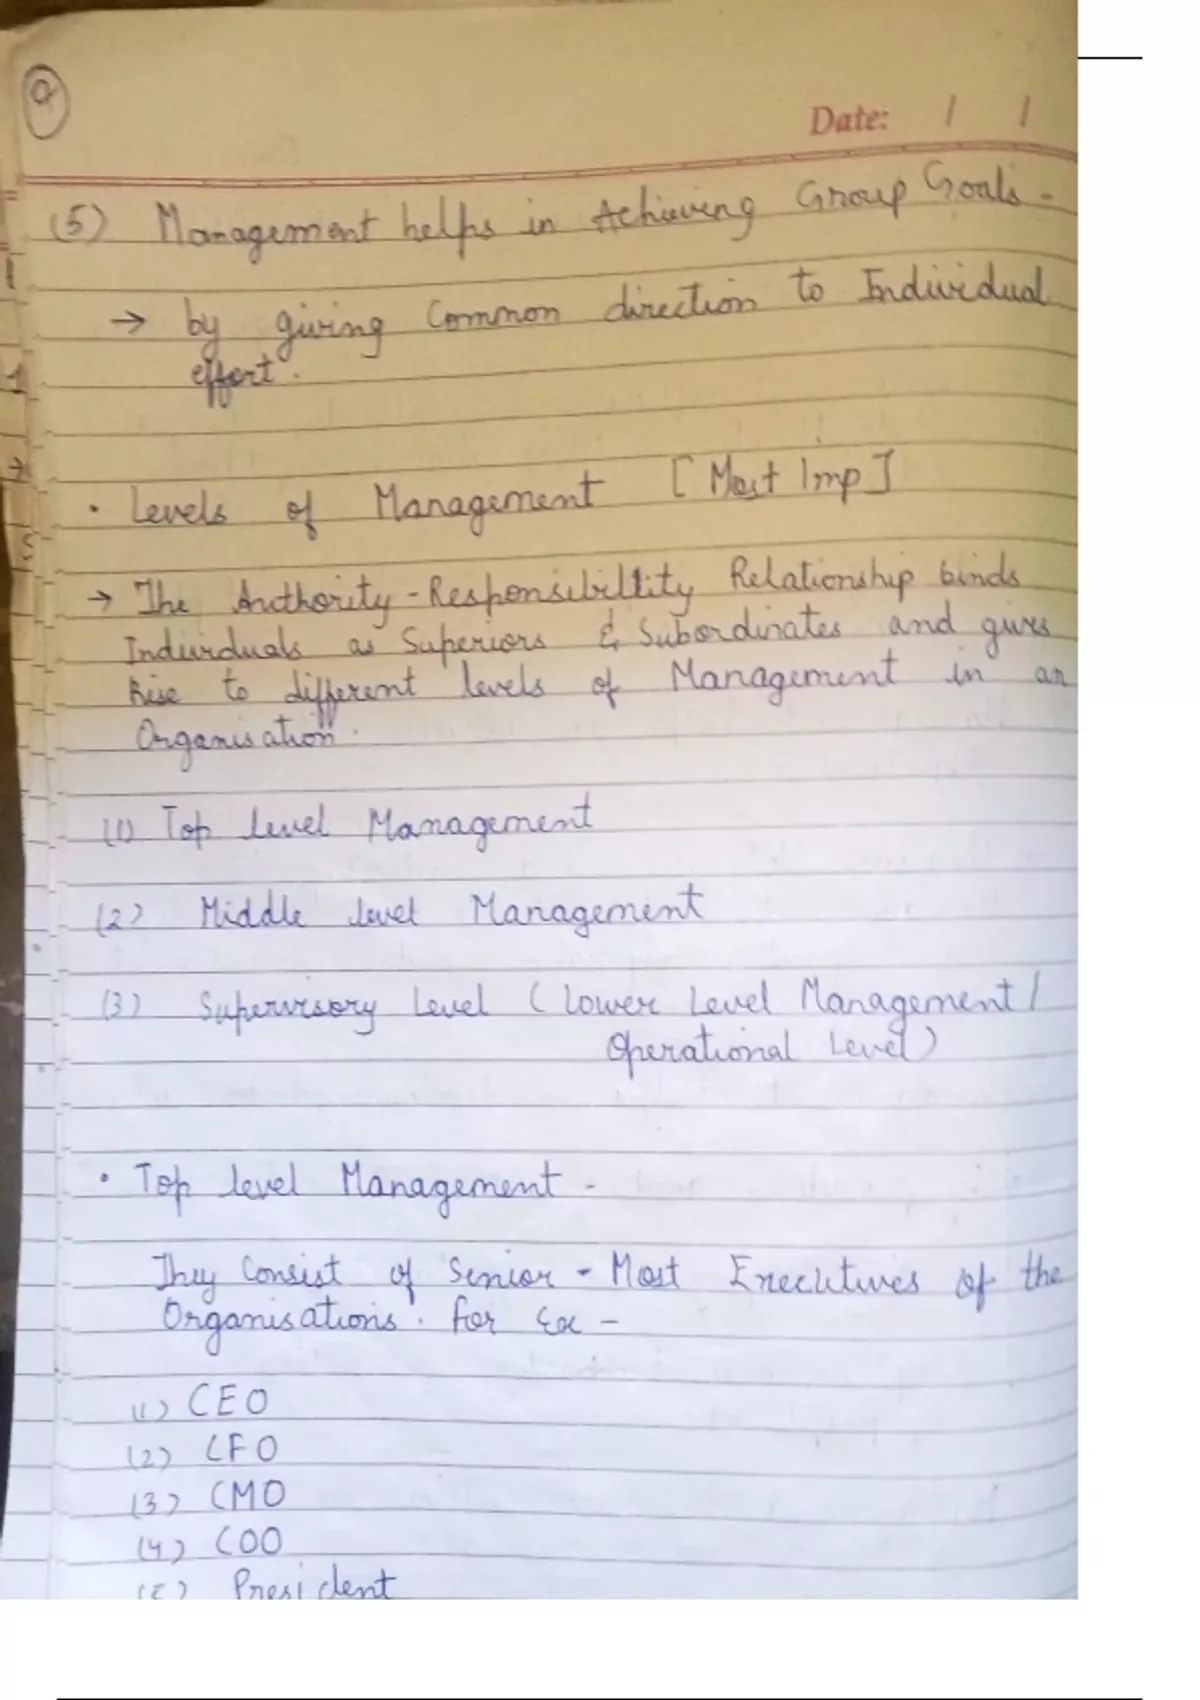 9
Date: / /
(5) Management helps in Achieving Group Goals -
→ by giving Common direction to Individual
effort.
• Levels of Management [Most Imp]
→ The Authority-Responsibility Relationship binds
Individuals as Superiors & Subordinates and gives
Rise to different levels of Management in an
Organisation.
(1) Top Level Management
(2) Middle level Management
(3) Supervisory Level (Lower Level Management /
Operational Level)
• Top level Management -
They Consist of Senior - Most Executives of the
Organisations. For Ex -
(1) CEO
(2) CFO
(3) CMO
(4) COO
(5) President